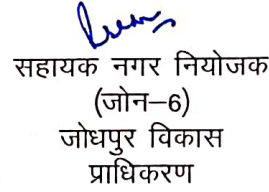 सहायक नगर नियोजक
(जोन–6)
जोधपुर विकास
प्राधिकरण